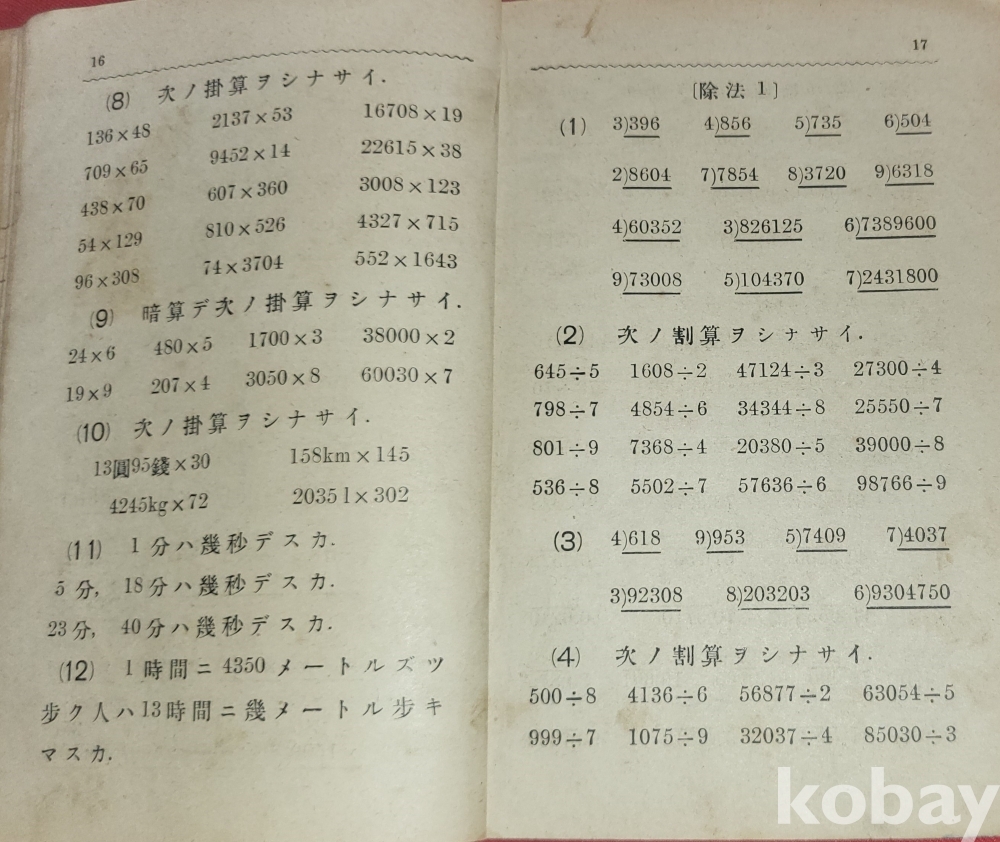 16
(8) 次ノ掛算ヲシナサイ.
136×48 2137×53 16708×19
709×65 9452×14 22615×38
438×70 607×360 3008×123
54×129 810×526 4327×715
96×308 74×3704 552×1643
(9) 暗算デ次ノ掛算ヲシナサイ.
24×6 480×5 1700×3 38000×2
19×9 207×4 3050×8 60030×7
(10) 次ノ掛算ヲシナサイ.
13圓95錢×30 158km×145
4245kg×72 2035l×302
(11) 1分ハ幾秒デスカ.
5分, 18分ハ幾秒デスカ.
23分, 40分ハ幾秒デスカ.
(12) 1時間ニ4350メートルズツ
歩ク人ハ13時間ニ幾メートル歩キ
マスカ.
17
[除法1]
(1) 3)396 4)856 5)735 6)504
2)8604 7)7854 8)3720 9)6318
4)60352 3)826125 6)7389600
9)73008 5)104370 7)2431800
(2) 次ノ割算ヲシナサイ.
645÷5 1608÷2 47124÷3 27300÷4
798÷7 4854÷6 34344÷8 25550÷7
801÷9 7368÷4 20380÷5 39000÷8
536÷8 5502÷7 57636÷6 98766÷9
(3) 4)618 9)953 5)7409 7)4037
3)92308 8)203203 6)9304750
(4) 次ノ割算ヲシナサイ.
500÷8 4136÷6 56877÷2 63054÷5
999÷7 1075÷9 32037÷4 85030÷3
kobay